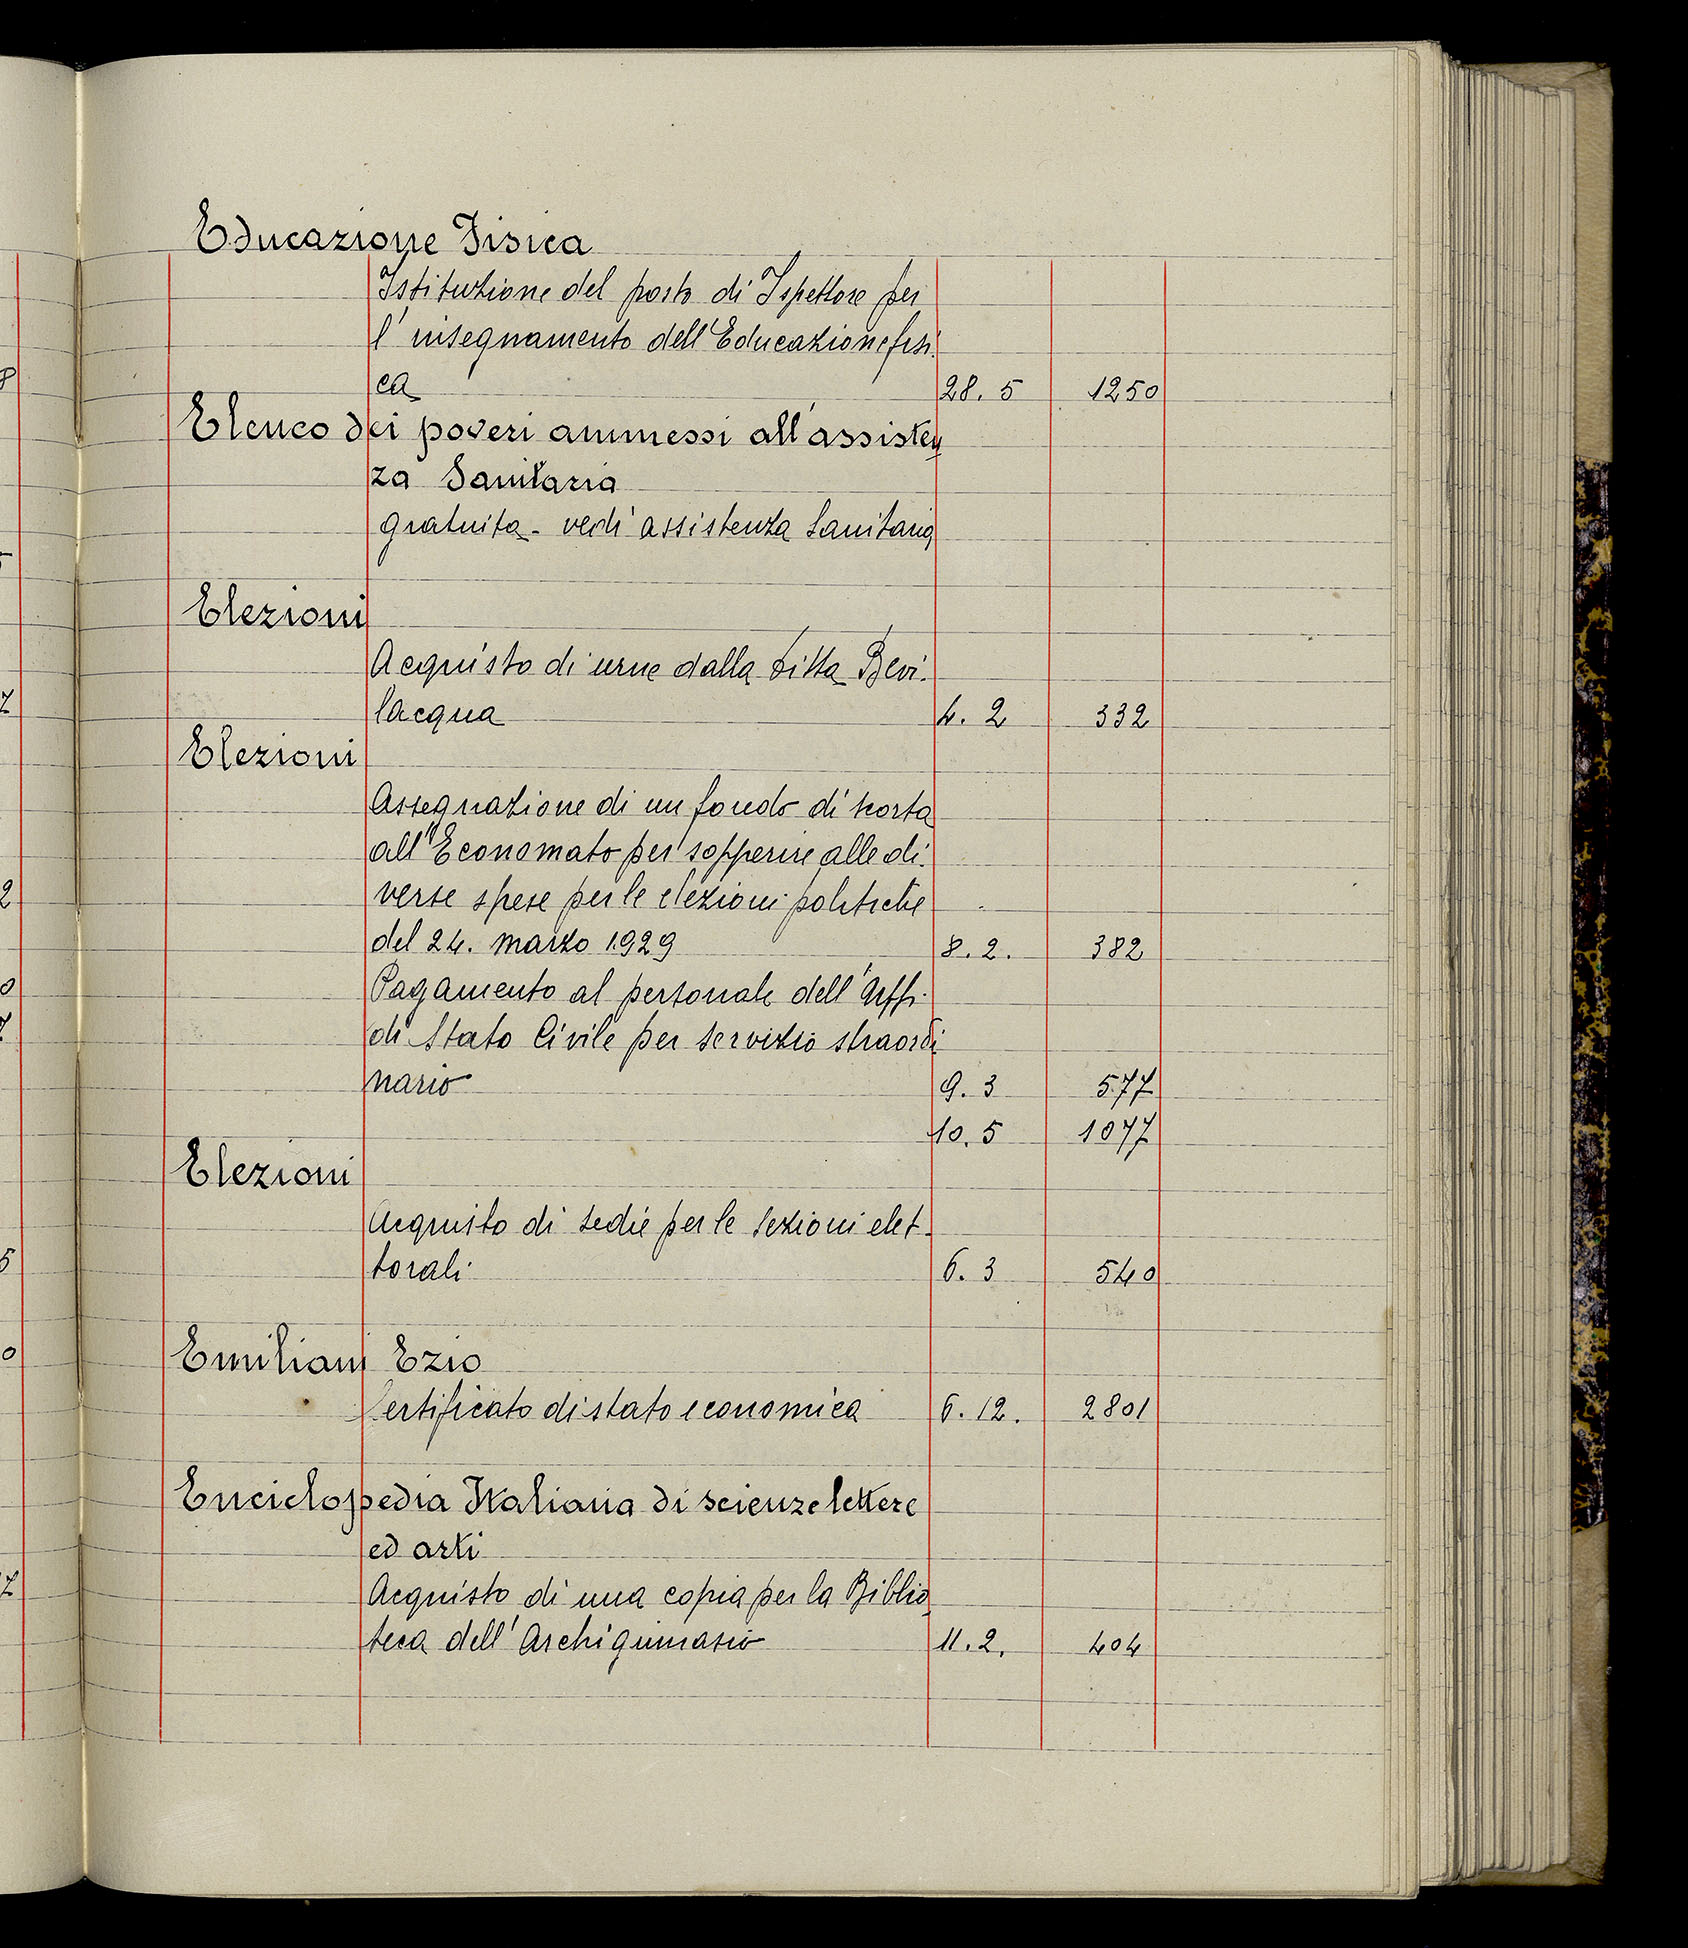 Educazione Fisica
Istituzione del posto di Ispettore per
l'insegnamento dell'Educazione fisi-
ca 28. 5 1250
Elenco dei poveri ammessi all'assisten
za Sanitaria
gratuita - vedi assistenza Sanitaria
Elezioni
Acquisto di urne dalla Ditta Bevi-
lacqua 4. 2 332
Elezioni
Assegnazione di un fondo di scorta
all'Economato per sopperire alle di-
verse spese per le elezioni politiche
del 24. marzo 1929 8. 2. 382
Pagamento al personale dell'Uffi.
di Stato Civile per servizio straordi
nario 9. 3 577
10. 5 1077
Elezioni
Acquisto di sedie per le sezioni elet-
torali 6. 3 540
Emiliani Ezio
Certificato di stato economica 6. 12. 2801
Enciclopedia Italiana di scienze lettere
ed arti
Acquisto di una copia per la Biblio
teca dell'Archiginnasio 11. 2. 404
8
7
2
0
7
5
0
7